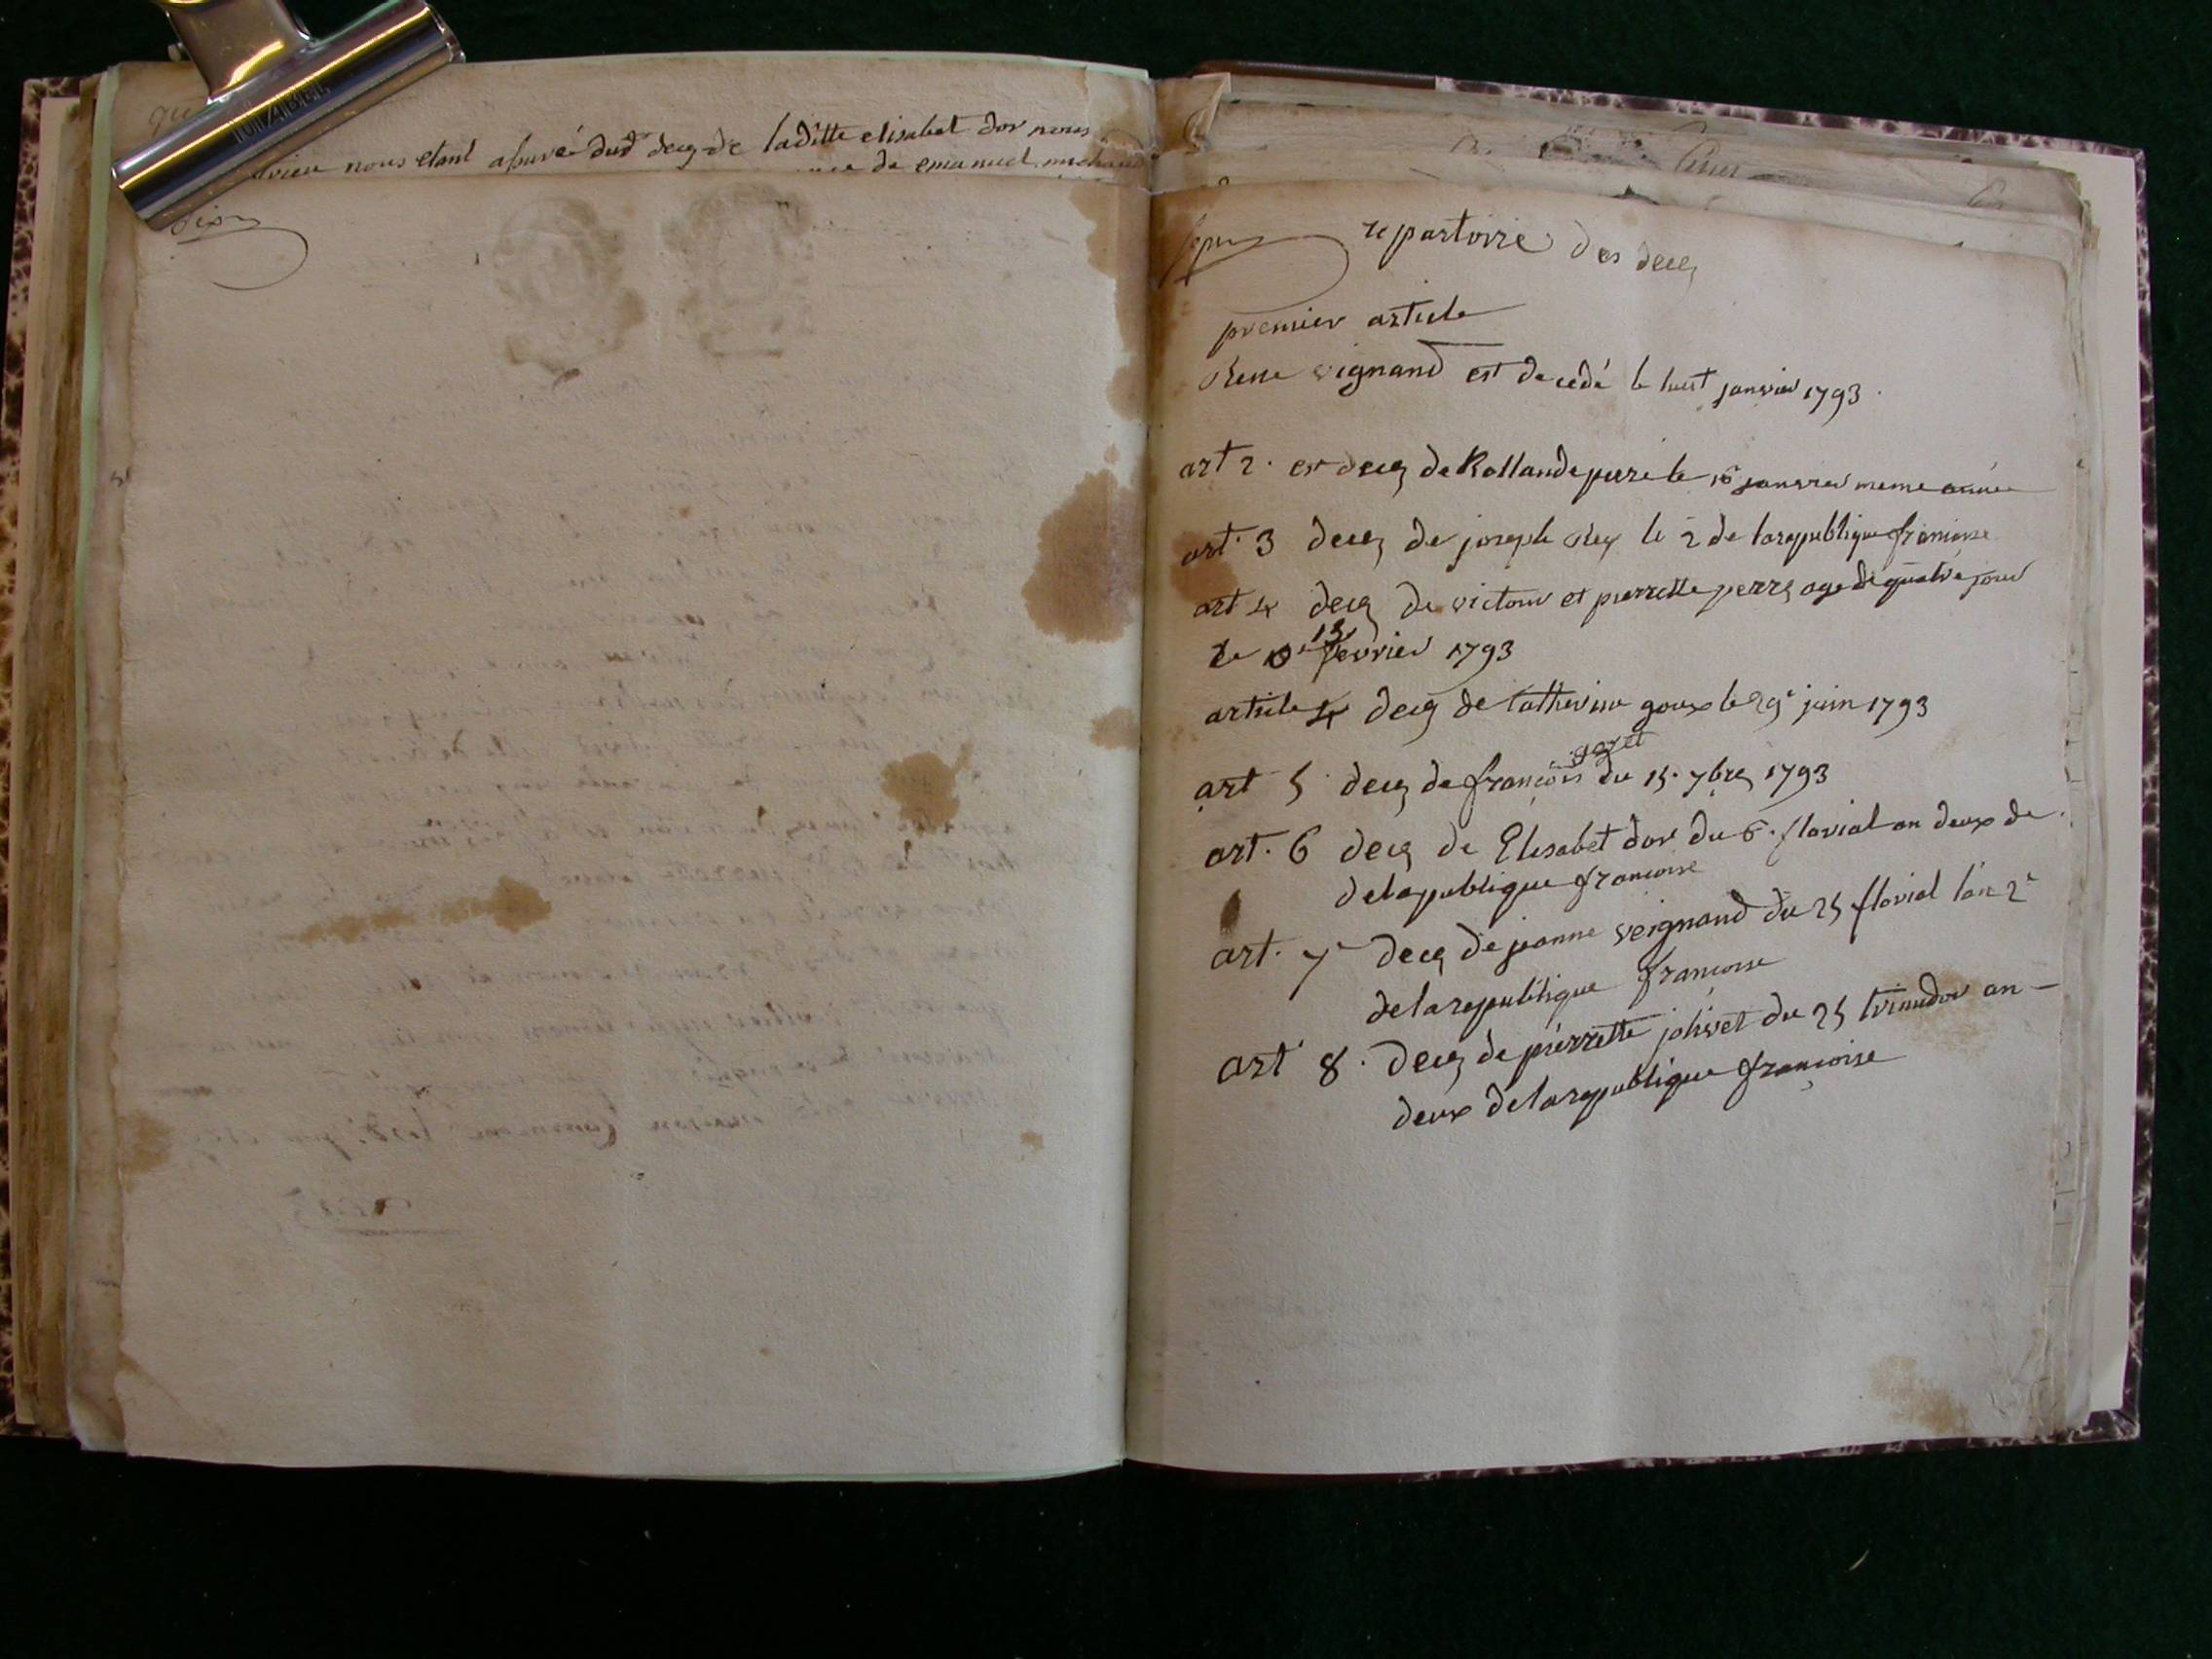 nous etant assuré dud deces de laditte elisabet dor nous
de emanuel michaud
dix
sept
repartoire des deces
premier article
Rene vignand est decedé le huit janvier 1793
art 2. est deces de Rollande le janvier meme année
art. 3 deces de joseph Rey le 2 de la republique francoise
art 4 deces de victour et pierrette perrs age de quatre jour
le 13 fevrier 1793
article 4 deces de Catherine goux le 29e juin 1793
goyet
art 5 deces de françois du 15. 7bre 1793
art. 6 deces de Elisabet dor du 6. florial an deux de
de la publique francoise
art. 7e deces de jeanne veignand du 25 florial l'an 2e
de la republique francoise
art 8. deces de pierrette jolivet du 25 trimidor an
deux de la republique françoise